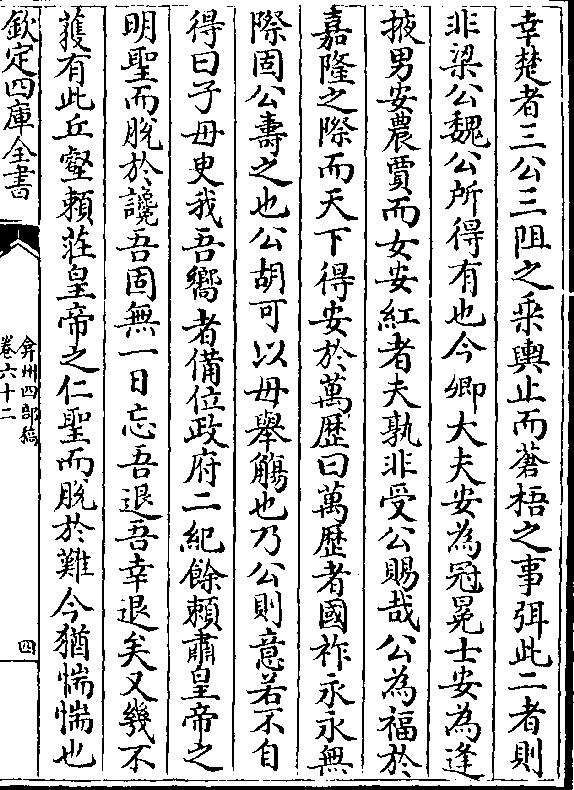 幸楚者三公三阻之乘輿止而蒼梧之事弭此二者則
非梁公魏公所得有也今卿大夫安為冠冕士安為逢
掖男安農賈而女安紅者夫孰非受公賜哉公為福於
嘉隆之際而天下得安於萬歴曰萬歴者國祚永永無
際固公壽之也公胡可以毋舉觴也乃公則意若不自
得曰子毋史我吾嚮者備位政府二紀餘頼肅皇帝之
明聖而脫於讒吾固無一日忘吾退吾幸退矣又幾不
蒦有此丘壑頼莊皇帝之仁聖而脫於難今猶惴惴也
欽定四庫全書
弇州四部稿
卷六十二
四